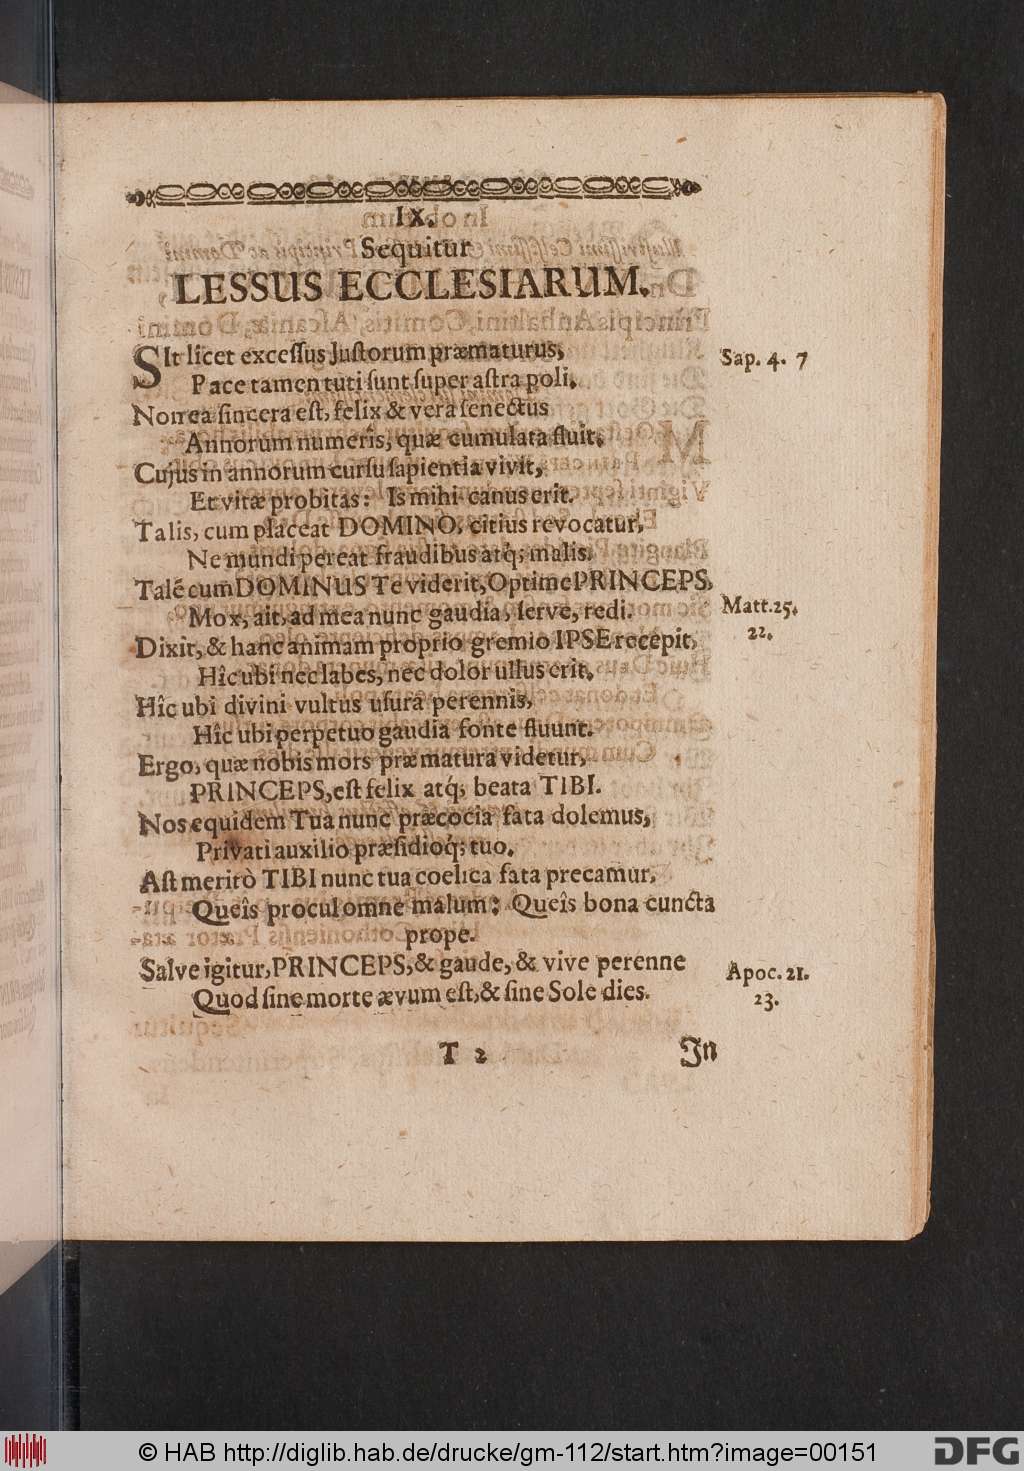 IX.
Sequitur
LESSUS ECCLESIARUM.
SIt licet exceſſus Juſtorum præmaturus,
Sap. 4. 7
Pace tamen tuti ſunt ſuper aſtra poli.
Non ea ſincera eſt, felix & vera ſenectus
Annorum numerîs, quæ cumulata fluit,
Cujus in annorum curſu ſapientia vivit,
Et vitæ probitas: Is mihi canus erit.
Talis, cum placeat DOMINO, citius revocatur,
Ne mundi pereat fraudibus atq́; malis.
Talē cum DOMINUS Te viderit, Optime PRINCEPS,
Mox, ait, ad mea nunc gaudia, ſerve, redi.
Matt. 25.
22.
Dixit, & hanc animam proprio gremio IPSE recepit,
Hîc ubi nec labes, nec dolor ullus erit,
Hîc ubi divini vultus uſura perennis,
Hîc ubi perpetuo gaudia fonte fluunt.
Ergo, quæ nobis mors præmatura videtur,
PRINCEPS, eſt felix atq́; beata TIBI.
Nos equidem Tua nunc præcocia fata dolemus,
Privati auxilio præſidioq́; tuo.
Aſt meritò TIBI nunc tua coelica fata precamur,
Queîs procul omne malum: Queîs bona cuncta
prope.
Salve igitur, PRINCEPS, & gaude, & vive perenne
Apoc. 21.
23.
Quod ſine morte ævum eſt, & ſine Sole dies.
T 2
In
© HAB http://diglib.hab.de/drucke/gm-112/start.htm?image=00151
DFG